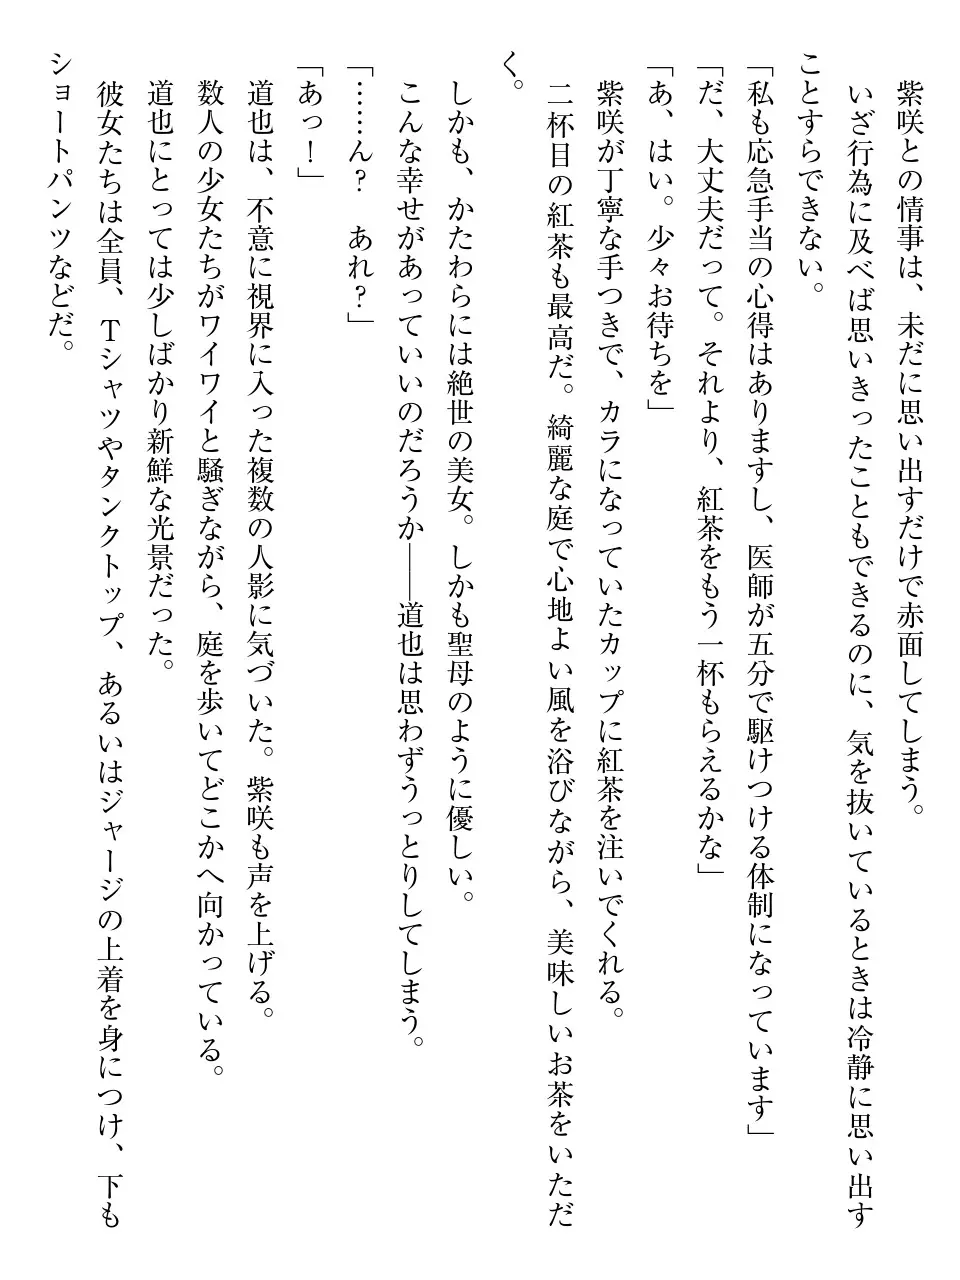 紫咲との情事は、未だに思い出すだけで赤面してしまう。
いざ行為に及べば思いきったこともできるのに、気を抜いているときは冷静に思い出す
ことすらできない。
「私も応急手当の心得はありますし、医師が五分で駆けつける体制になっています」
「だ、大丈夫だって。それより、紅茶をもう一杯もらえるかな」
「あ、はい。少々お待ちを」
紫咲が丁寧な手つきで、カラになっていたカップに紅茶を注いでくれる。
二杯目の紅茶も最高だ。綺麗な庭で心地よい風を浴びながら、美味しいお茶をいただ
く。
しかも、かたわらには絶世の美女。しかも聖母のように優しい。
こんな幸せがあっていいのだろうか――道也は思わずうっとりしてしまう。
「……ん？　あれ？」
「あっ！」
道也は、不意に視界に入った複数の人影に気づいた。紫咲も声を上げる。
数人の少女たちがワイワイと騒ぎながら、庭を歩いてどこかへ向かっている。
道也にとっては少しばかり新鮮な光景だった。
彼女たちは全員、Ｔシャツやタンクトップ、あるいはジャージの上着を身につけ、下も
ショートパンツなどだ。